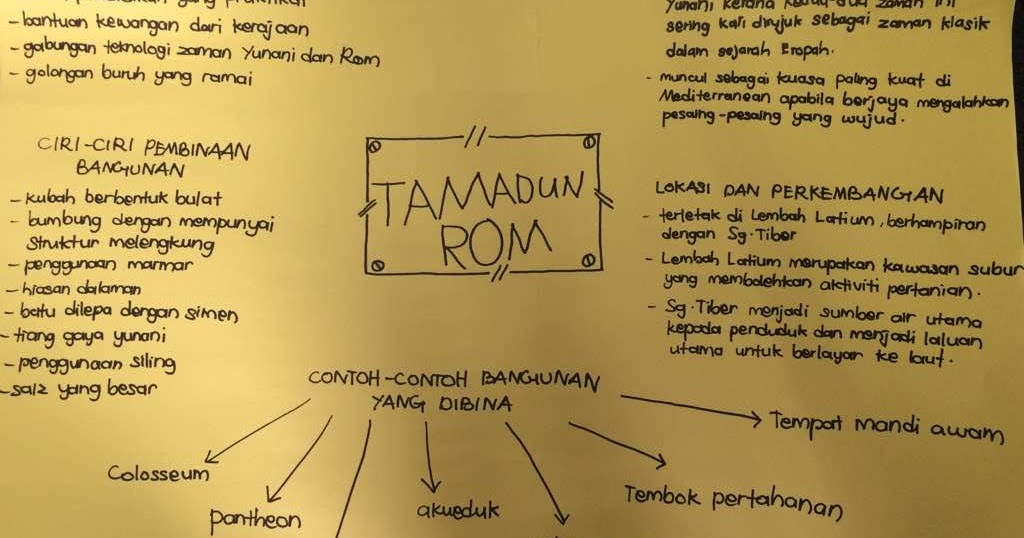 - bantuan kewangan dari kerajaan
- gabungan teknologi zaman Yunani dan Rom
- golongan buruh yang ramai
CIRI-CIRI PEMBINAAN
BANGUNAN
- kubah berbentuk bulat
- bumbung dengan mempunyai
struktur melengkung
- penggunaan marmar
- hiasan dalaman
- batu dilepa dengan simen
- tiang gaya yunani
- penggunaan siling
- saiz yang besar
TAMADUN
ROM
Yunani kerana kedua-dua zaman ini
sering kali dirujuk sebagai zaman klasik
dalam sejarah Eropah.
- muncul sebagai kuasa paling kuat di
Mediterranean apabila berjaya mengalahkan
pesaing-pesaing yang wujud.
LOKASI DAN PERKEMBANGAN
- terletak di Lembah Latium, berhampiran
dengan Sg. Tiber
- Lembah Latium merupakan kawasan subur
yang membolehkan aktiviti pertanian.
- Sg. Tiber menjadi sumber air utama
kepada penduduk dan menjadi laluan
utama untuk berlayar ke laut.
CONTOH-CONTOH BANGUNAN
YANG DIBINA
Colosseum
pantheon
akueduk
Tembok pertahanan
Tempat mandi awam